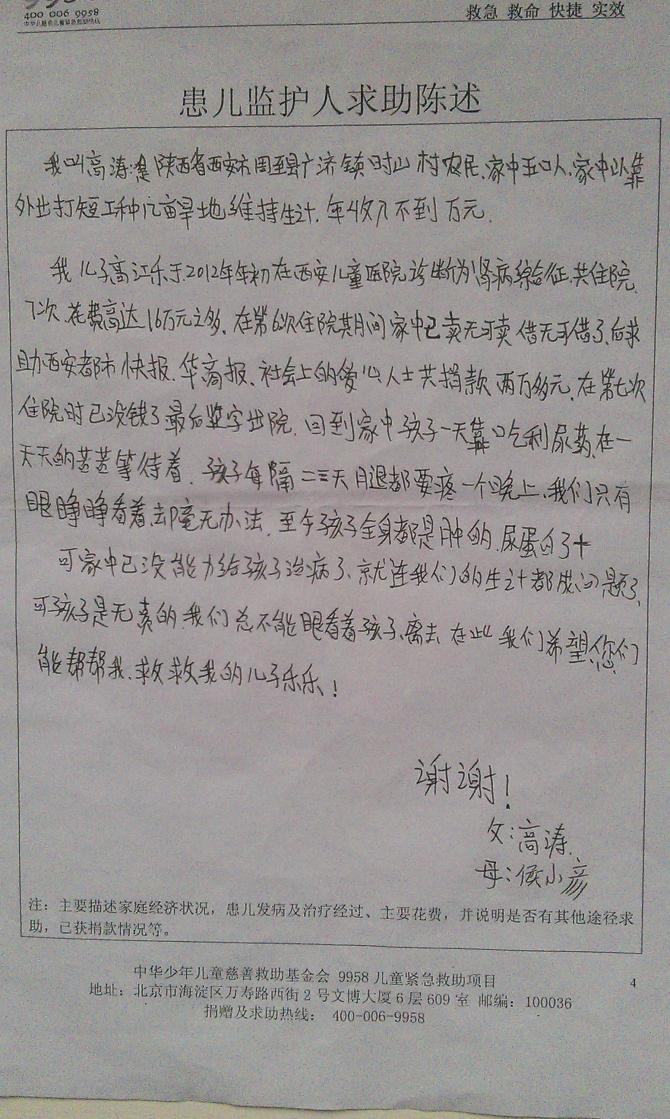 400 006 9958
中华儿慈会儿童紧急救助热线
救急 救命 快捷 实效
患儿监护人求助陈述
我叫高涛是陕西省西安市周至县广济镇时山村农民、家中五口人,家中以靠
外出打短工种几亩旱地维持生计.年收入不到万元.
我儿子高江乐于2012年年初在西安儿童医院诊断为肾病综合征.共住院
7次.花费高达16万元之多.在第6次住院其月间家中已卖无可卖借无可借了.后求
助西安都市快报.华商报.社会上的爱心人士共捐款两万多元.在第七次
住院时已没钱了最后签字出院.回到家中孩子一天靠口吃利尿药.在一
天天的苦苦等待着.孩子每隔二三天月退都要疼一个晚上、我们只有
眼睁睁看着.却毫无办法.至今孩子全身都是肿的.尿蛋白了+
可家中已没能力给孩子治病了.就连我们的生计都成问题了.
可孩子是无辜的我们总不能眼看着孩子.离去.在此我们希望.您们
能帮帮我.救救我的儿子乐乐!
谢谢!
父:高涛.
母:侯小彦
注:主要描述家庭经济状况,患儿发病及治疗经过、主要花费,并说明是否有其他途径求
助,已获捐款情况等。
中华少年儿童慈善救助基金会 9958 儿童紧急救助项目
4
地址:北京市海淀区万寿路西街 2 号文博大厦 6 层 609 室 邮编:100036
捐赠及求助热线: 400-006-9958